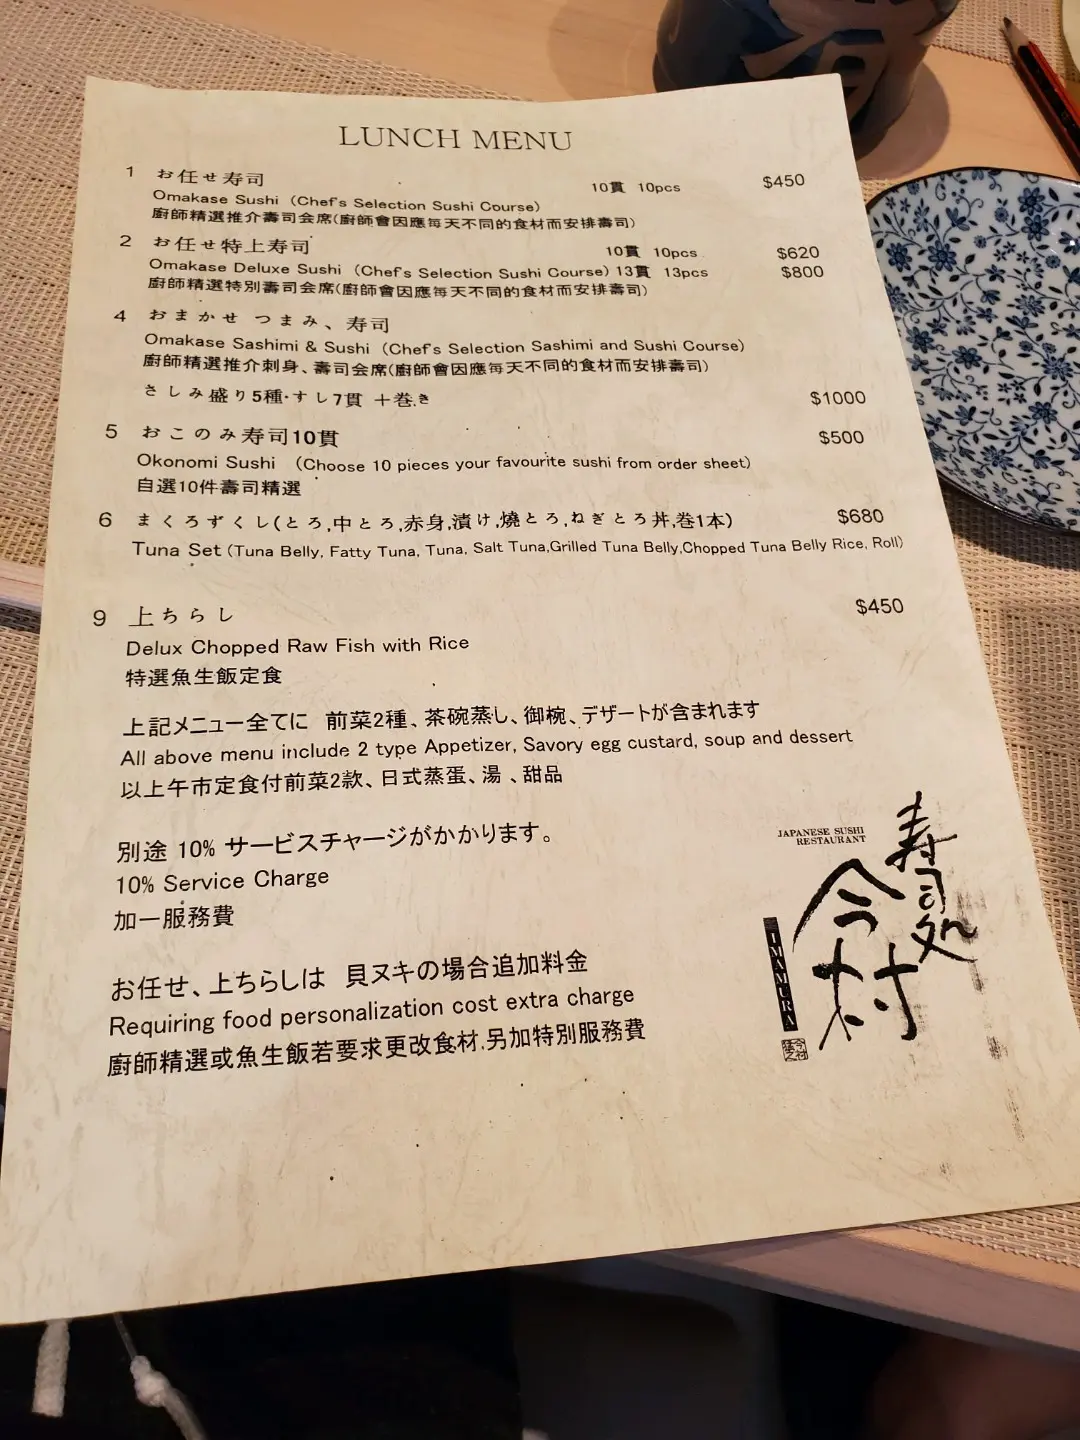 LUNCH MENU
1 お任せ寿司 10貫 10pcs $450
Omakase Sushi (Chef's Selection Sushi Course)
廚師精選推介壽司会席(廚師會因應每天不同的食材而安排壽司)
2 お任せ特上寿司 10貫 10pcs $620
Omakase Deluxe Sushi (Chef's Selection Sushi Course) 13貫 13pcs $800
廚師精選特別壽司会席(廚師會因應每天不同的食材而安排壽司)
4 おまかせ つまみ、寿司
Omakase Sashimi & Sushi (Chef's Selection Sashimi and Sushi Course)
廚師精選推介刺身、壽司会席(廚師會因應每天不同的食材而安排壽司)
さしみ盛り5種・すし7貫 十巻き $1000
5 おこのみ寿司10貫 $500
Okonomi Sushi (Choose 10 pieces your favourite sushi from order sheet)
自選10件壽司精選
6 まくろずくし(とろ,中とろ,赤身,漬け,燒とろ,ねぎとろ丼,巻1本) $680
Tuna Set (Tuna Belly, Fatty Tuna, Tuna, Salt Tuna,Grilled Tuna Belly,Chopped Tuna Belly Rice, Roll)
9 上ちらし $450
Delux Chopped Raw Fish with Rice
特選魚生飯定食
上記メニュー全てに 前菜2種、茶碗蒸し、御椀、デザートが含まれます
All above menu include 2 type Appetizer, Savory egg custard, soup and dessert
以上午市定食付前菜2款、日式蒸蛋、湯、甜品
別途 10% サービスチャージがかかります。
10% Service Charge
加一服務費
お任せ、上ちらしは 貝ヌキの場合追加料金
Requiring food personalization cost extra charge
廚師精選或魚生飯若要求更改食材,另加特別服務費
JAPANESE SUSHI
RESTAURANT
寿司処
今村
IMAMURA